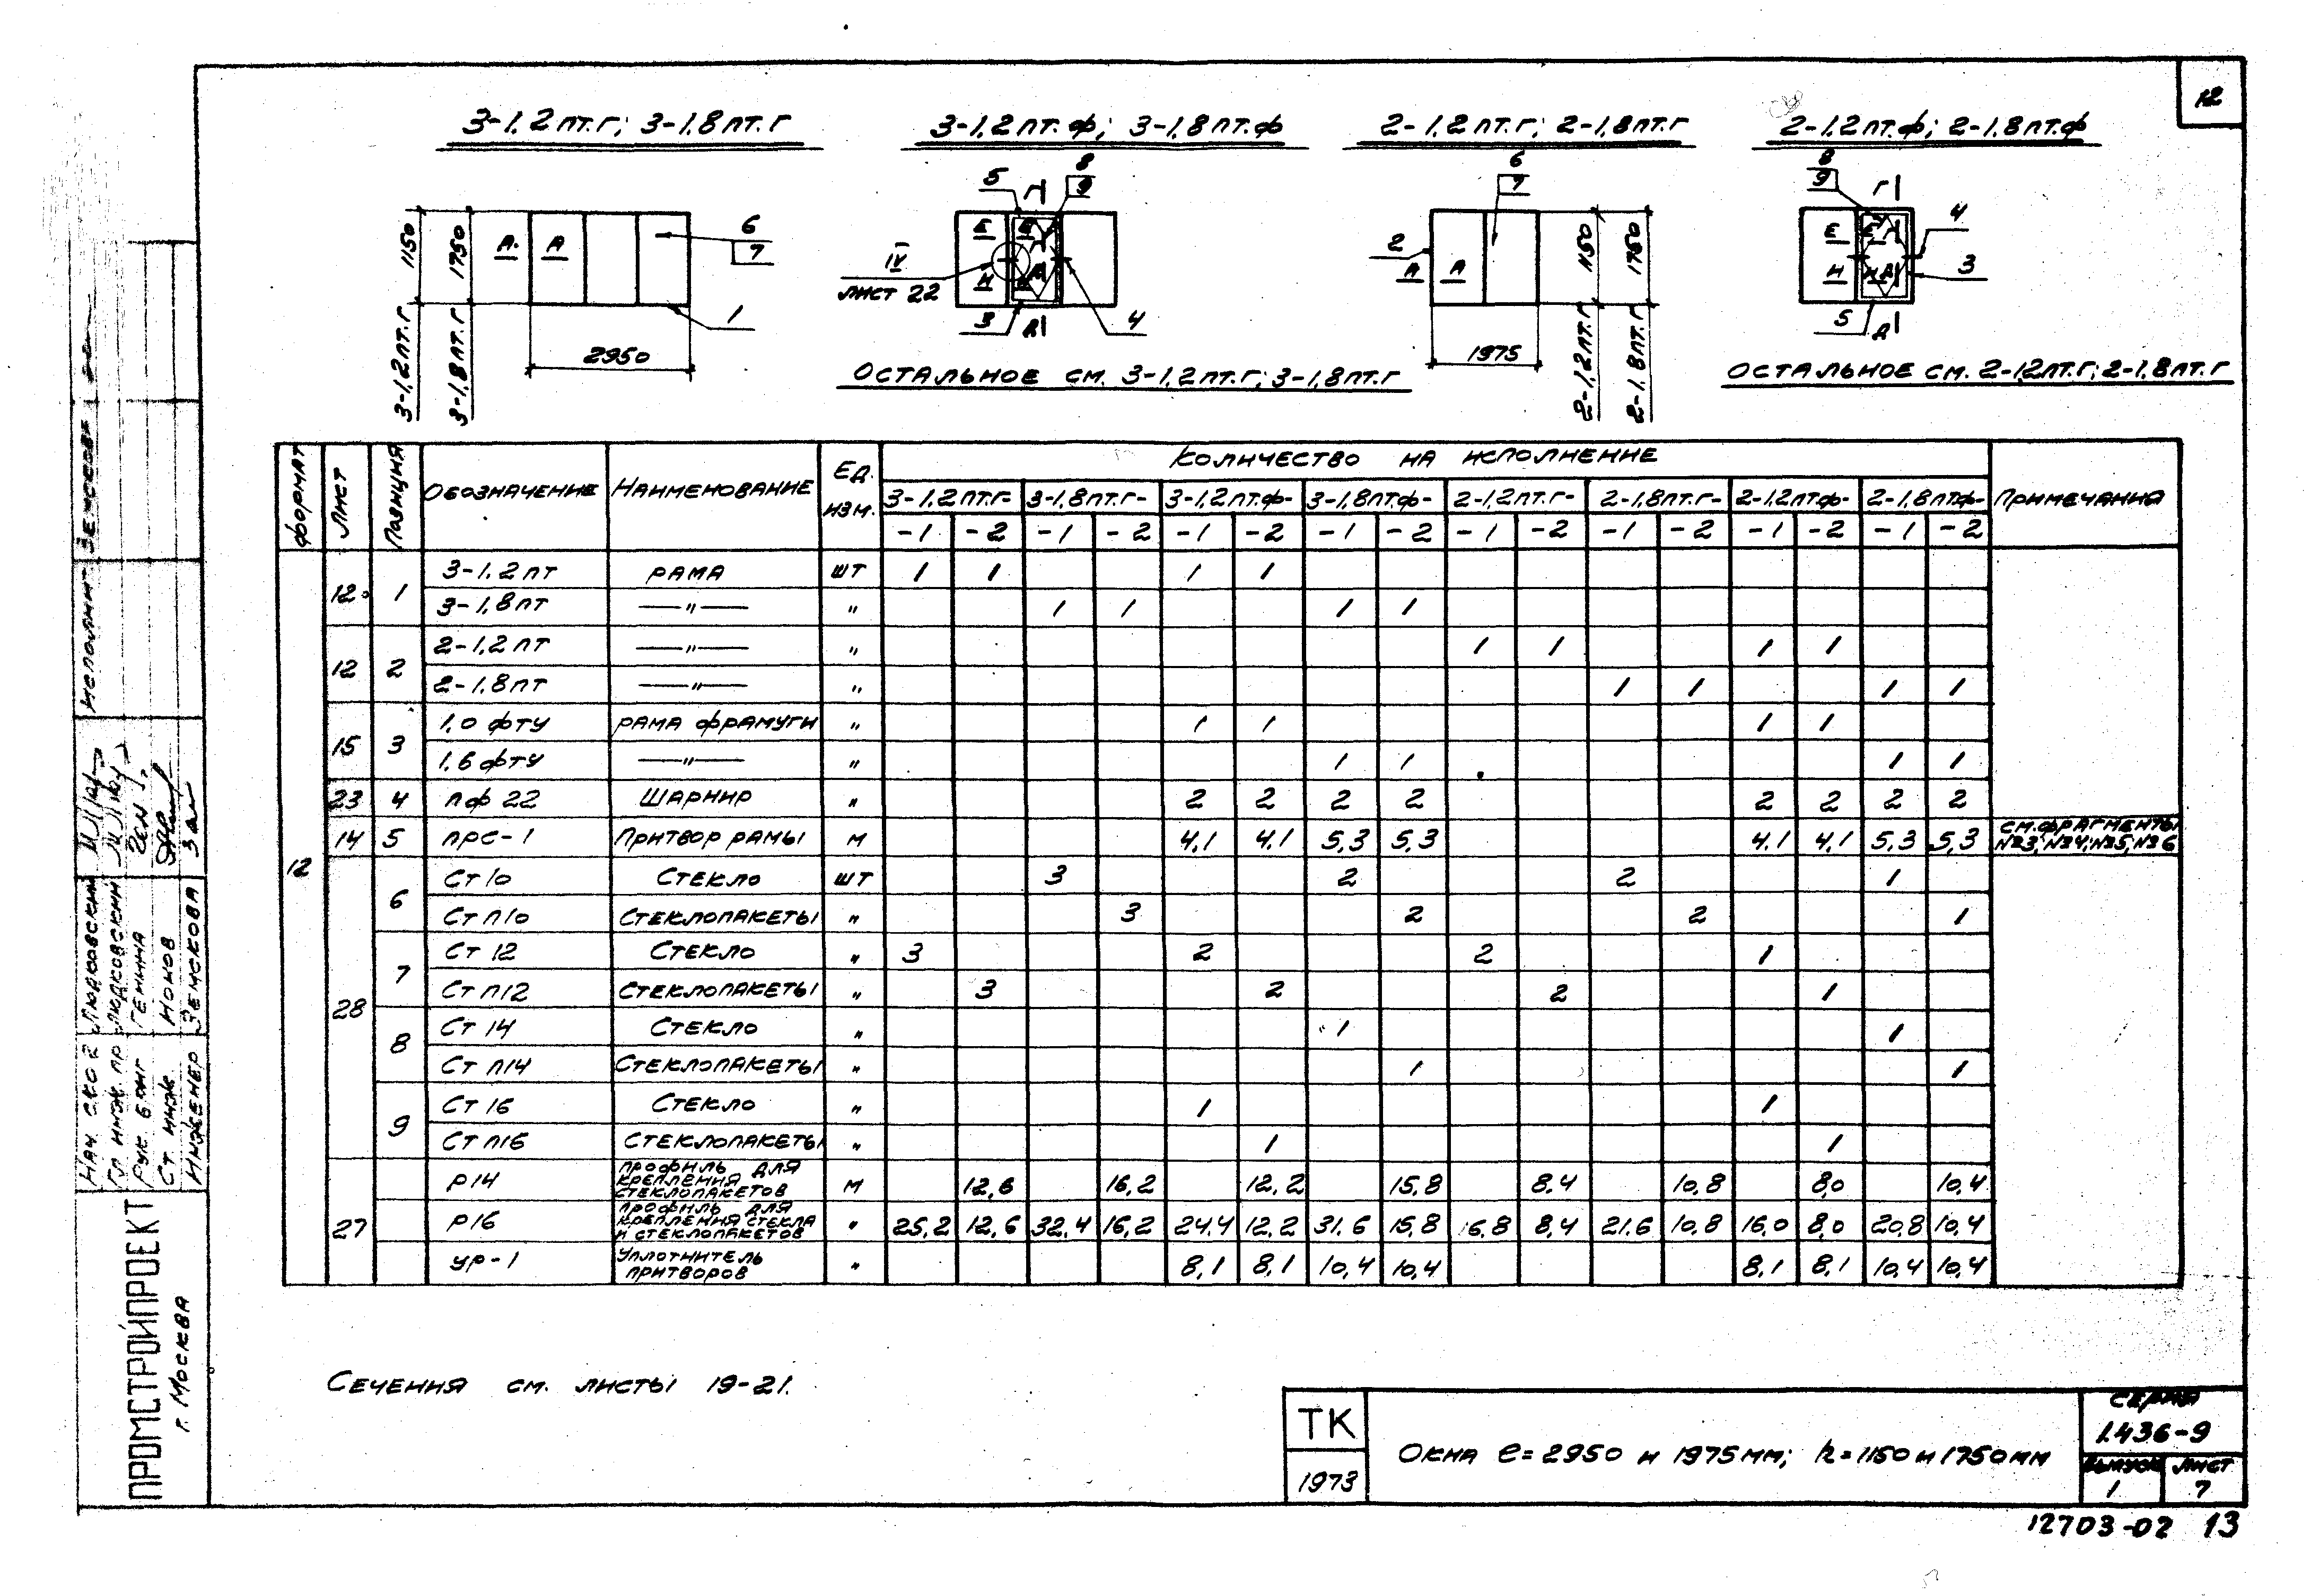 12
3-1,2пт.г; 3-1,8пт.г
3-1,2пт.ф; 3-1,8пт.ф
2-1,2пт.г; 2-1,8пт.г
2-1,2пт.ф; 2-1,8пт.ф
1150
1750
3-1,2пт.г
3-1,8пт.г
А А
6
7
1
2950
5
Г
8
9
Е Е
IV
лист 22
И
Д
3
4
Остальное см. 3-1,2пт.г; 3-1,8пт.г
6
7
2
А А
1975
1150
1750
2-1,2пт.г
2-1,8пт.г
8
9
Г
Е Е
4
3
И И
5
Д
Остальное см. 2-1,2пт.г; 2-1,8пт.г
Формат Лист Позиция Обозначение Наименование Ед. изм. Количество на исполнение Примечания
3-1,2пт.г- 3-1,8пт.г- 3-1,2пт.ф- 3-1,8пт.ф- 2-1,2пт.г- 2-1,8пт.г- 2-1,2пт.ф- 2-1,8пт.ф-
-1 -2 -1 -2 -1 -2 -1 -2 -1 -2 -1 -2 -1 -2 -1 -2
12
12 1 3-1,2пт Рама шт 1 1 1 1
3-1,8пт —„— „ 1 1 1 1
12 2 2-1,2пт —„— „ 1 1 1 1
2-1,8пт —„— „ 1 1 1 1
15 3 1,0фту Рама фрамуги „ 1 1 1 1
1,6фту —„— „ 1 1 1 1
23 4 пф 22 Шарнир „ 2 2 2 2 2 2 2 2
14 5 прс-1 Притвор рамы м 4,1 4,1 5,3 5,3 4,1 4,1 5,3 5,3 см.фрагменты №3,№4,№5,№6
28 6 Ст 10 Стекло шт 3 2 2 1
Ст п10 Стеклопакеты „ 3 2 2 1
7 Ст 12 Стекло „ 3 2 2 1
Ст п12 Стеклопакеты „ 3 2 2 1
8 Ст 14 Стекло „ 1 1
Ст п14 Стеклопакеты „ 1 1
9 Ст 16 Стекло „ 1 1
Ст п16 Стеклопакеты „ 1 1
27 р14 Профиль для крепления стеклопакетов м 12,6 16,2 12,2 15,8 8,4 10,8 8,0 10,4
р16 Профиль для крепления стекла и стеклопакетов „ 25,2 12,6 32,4 16,2 24,4 12,2 31,6 15,8 16,8 8,4 21,6 10,8 16,0 8,0 20,8 10,4
ур-1 Уплотнитель притворов „ 8,1 8,1 10,4 10,4 8,1 8,1 10,4 10,4
Сечения см. листы 19-21.
ТК
1973
Окна e=2950 и 1975мм; h=1150и1750мм
Серия
1.436-9
Выпуск Лист
1 7
12703-02 13
ПРОМСТРОЙПРОЕКТ
г. Москва
Нач. СКО 2 Людковский
Гл. инж. пр Людковский
Рук. бриг Генина
Ст инж.
Инженер Земскова
Исполнит Земскова